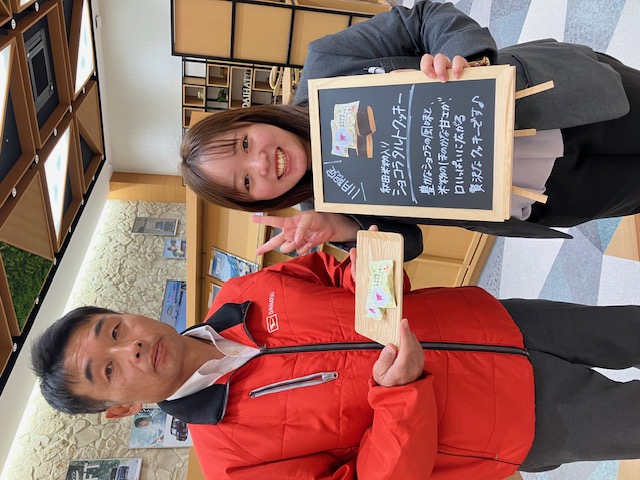 11月限定
秋田米粉入り
ショコラタルトクッキー
豊かなショコラの風味と、
米粉のほのかな甘さが
口いっぱいに広がる
贅沢なクッキーです♪
DAIHATSU
DAIHATSU